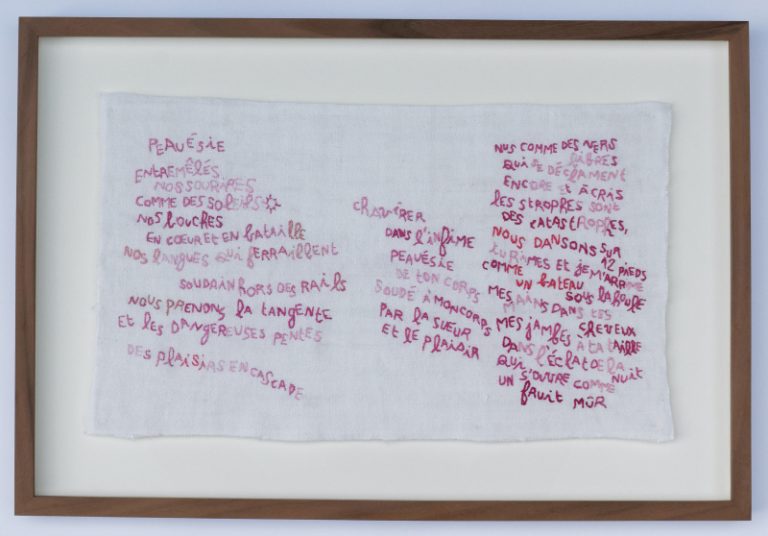 PEAUÉSIE
ENTREMÊLÉS
NOS SOURIRES
COMME DES SOLEILS
NOS bOUCHES
EN CŒUR ET EN bATAILLE
NOS LANGUES QUI FERRAILLENT
SOUDAIN HORS DES RAILS
NOUS PRENONS LA TANGENTE
ET LES DANGEREUSES PENTES
DES PLAISIRS EN CASCADE
CHAVIRER
DANS L'INFÎME
PEAUÉSIE
DE TON CORPS
SOUDÉ À MON CORPS
PAR LA SUEUR
ET LE PLAISIR
NUS COMME DES VERS
QUI SE DÉCLAMENT
LIBRES
ENCORE ET À CRIS
LES STROPHES SONT
DES CATASTROPHES,
NOUS DANSONS SUR 12 PIEDS
TU RIMES ET JE M'ARRIME
COMME UN bATEAU SOUS LA HOULE
MES MAINS DANS TES CHEVEUX
MES JAMbES A TA TAILLE
DANS L'ÉCLAT DE LA NUIT
QUI S'OUVRE COMME
UN FRUIT MÛR